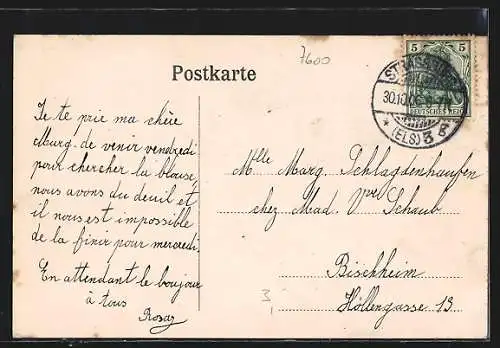 7600
Postkarte
5 5
STRASSBURG
30.10.06.
DEUTSCHES REICH
* (ELS) 3 b
Je te prie ma chère
Marg. de venir vendredi
pour chercher la blouse,
nous avons du deuil et
il nous est impossible
de la finir pour mercredi.
En attendant le bonjour
à tous
Rosa
Mlle Marg. Schlagdenhaufen
chez Mad. Vve Schaub
Bischheim
Höllengasse 13
3